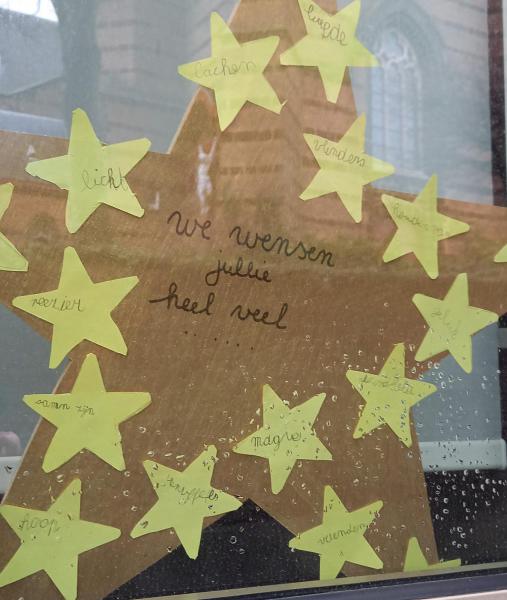 liefde
lachen
vlinders
licht
we wensen
jullie
heel veel
.......
plezier
geluk
samen zijn
magie
knuffels
hoop
vrienden